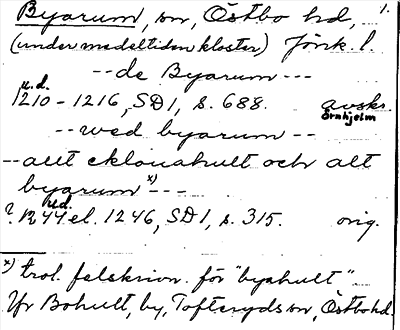 Byarum, sn, Östbo hd, 1.
(under medeltiden kloster) Jönk. l.
--de Byarum---
u.d.
1210-1216, SD 1, s. 688. avskr.
Örnhjelm
--wed byarum--
--allt eklanahult och alt
byarum x)---
u.d.
? 1244 el. 1246, SD 1, s. 315. orig.
x) trol. felskrivn. för "byahult"
Jfr Bohult, by, Tofteryds sn, Östbo hd.